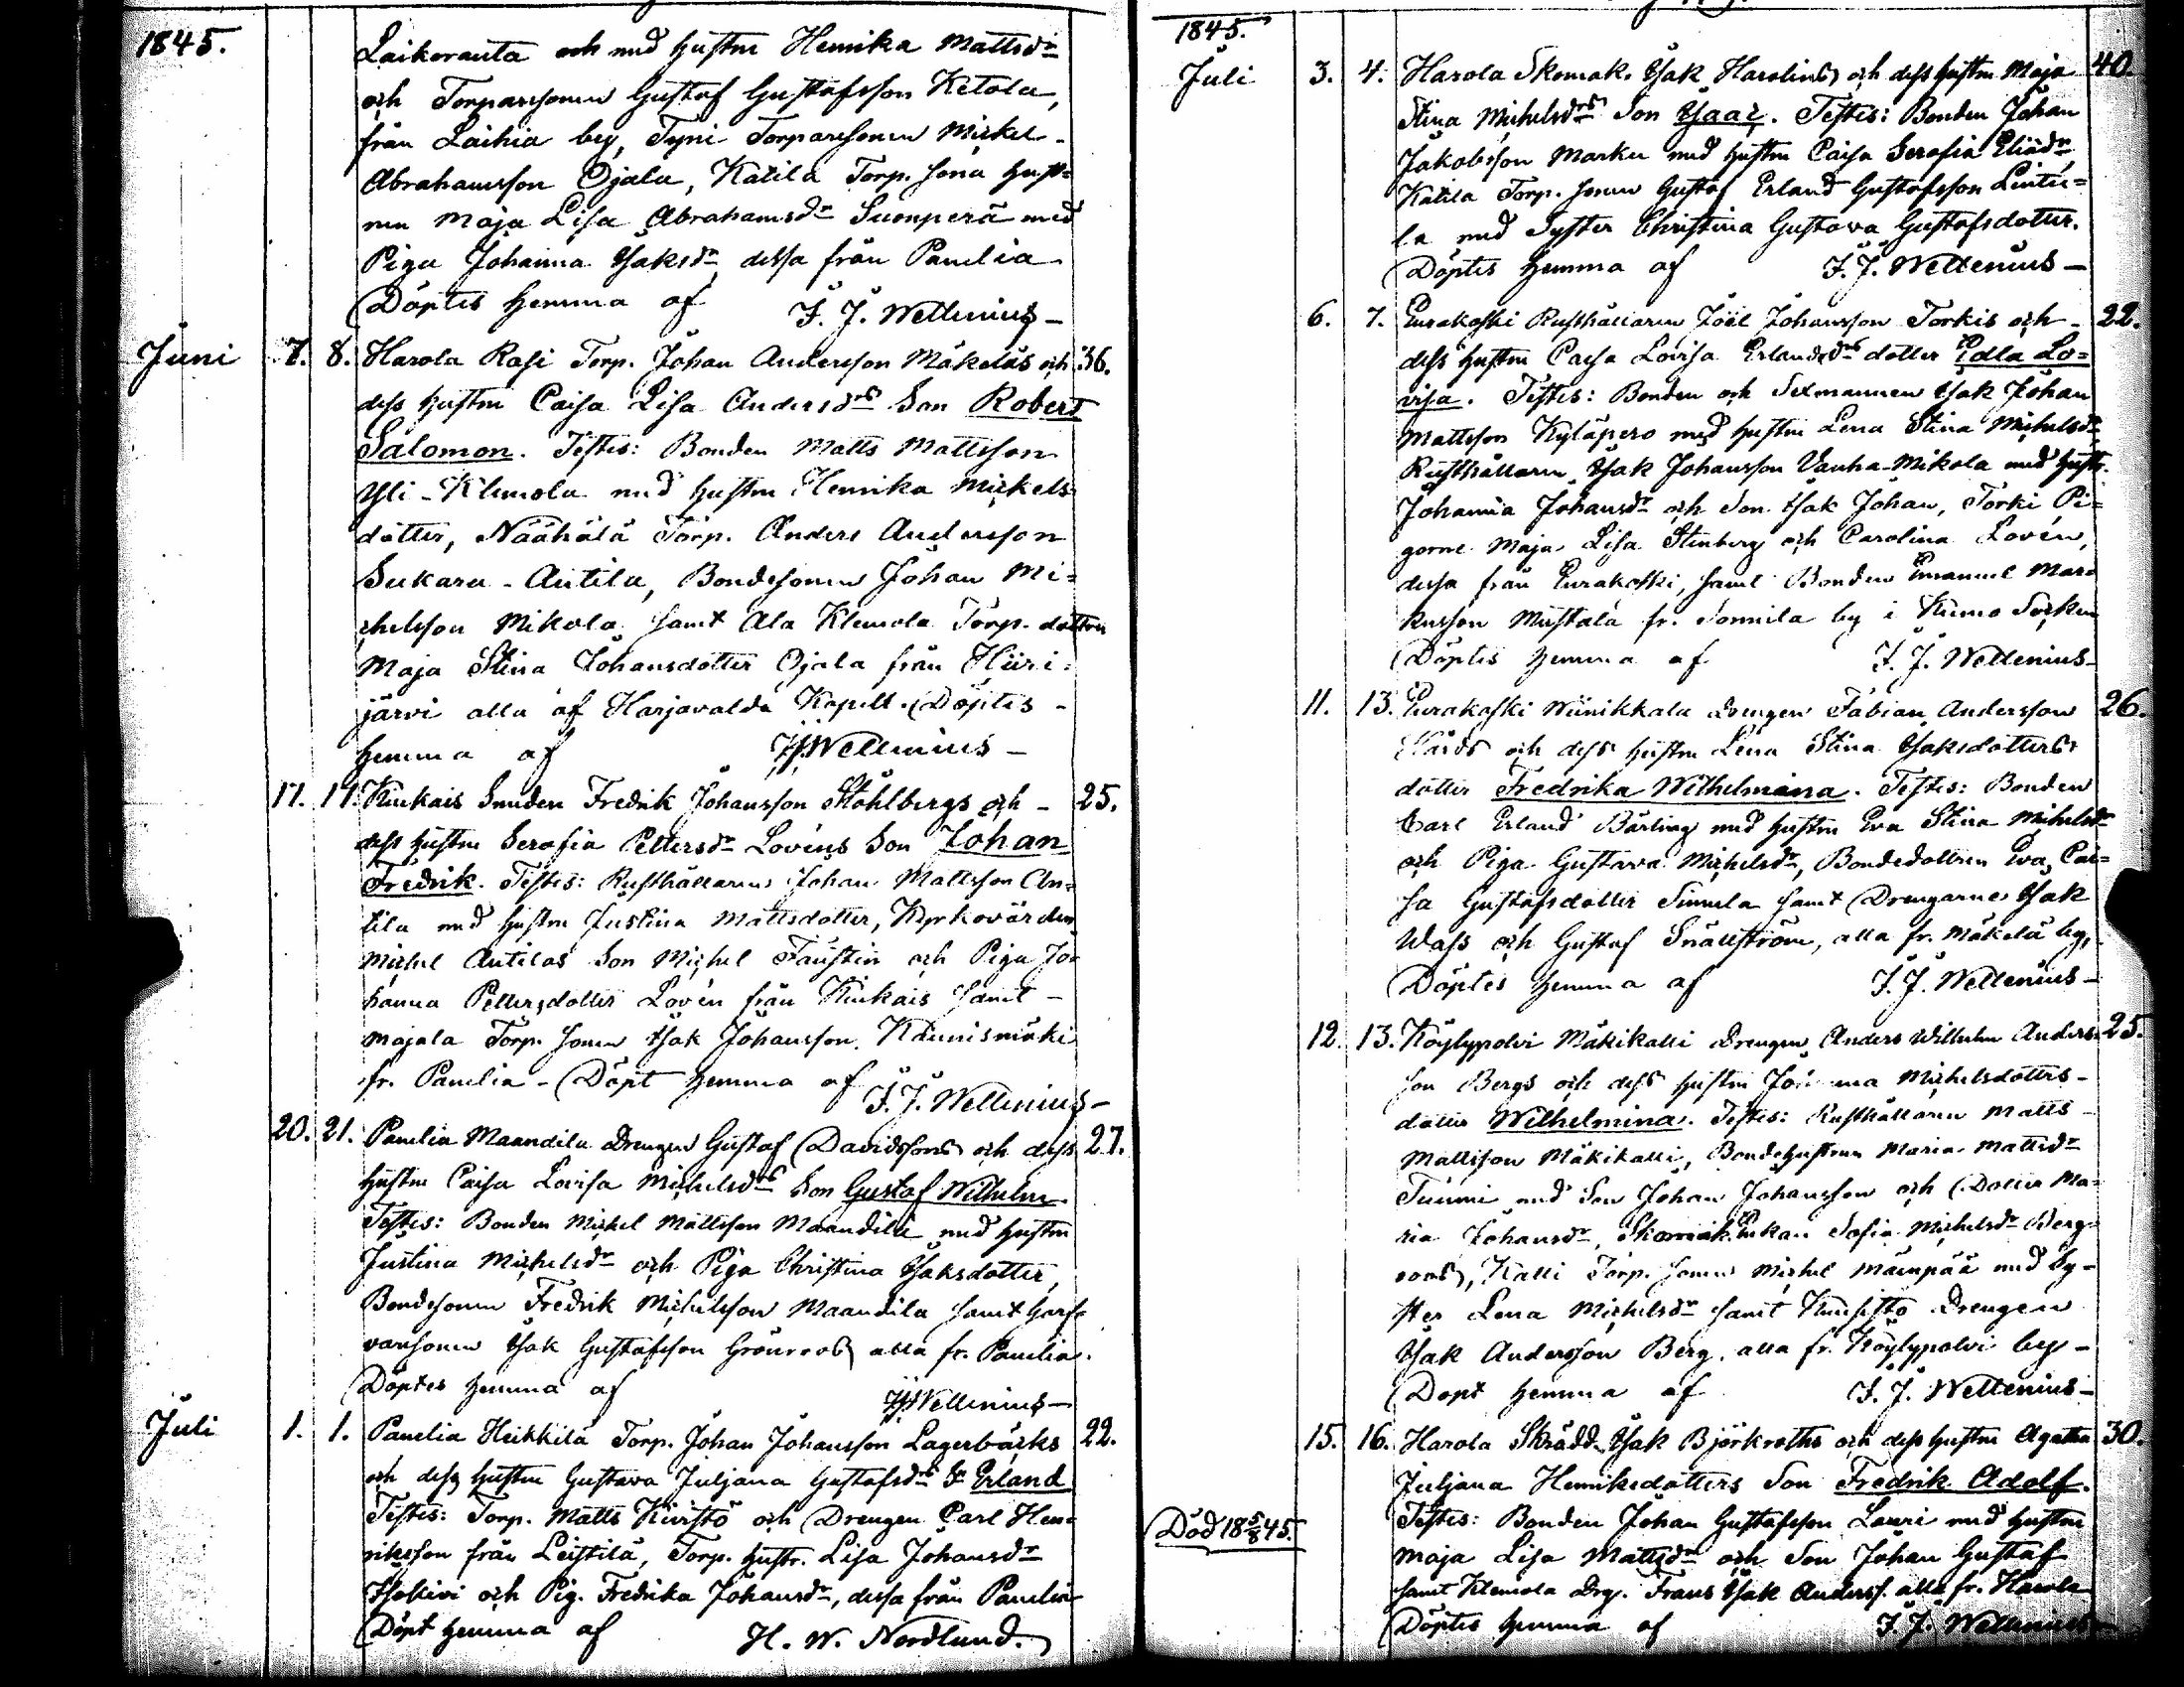 1845.
Laikorauta och med hustru Henrika Mattsdr
och Torparesonen Gustaf Gustafsson Ketola,
från Laihia by, Tyni Torparesonen Mickel
Abrahamsson Ojala, Katila Torp. sona hust=
run Maja Lisa Abrahamsdr Suonperä med
Piga Johanna Isaksdr dessa från Panelia
Döptes hemma af F. J. Wettenius
Juni 7. 8. Harola Rasi Torp. Johan Andersson Mäkeläs och 36.
dess hustru Caisa Lisa Andersdrs Son Robert
Salomon. Testes: Bonden Matts Mattsson
Yli-Klemola med hustru Henrika Mickels
dotter, Näähälä Torp. Anders Andersson
Sukara-Antila, Bondesonen Johan Mi=
chelsson Mikola samt Ala Klemola Torp. dottren
Maja Stina Johansdotter Ojala från Hiiri=
järvi alla af Harjavalda Kapell. Döptes
hemma af FJWettenius
17. 17. Kiukais Smeden Fredrik Johansson Ståhlbergs och 25.
dess hustru Serafia Pettersdr Lovéns Son Johan
Fredrik. Testes: Rusthållaren Johan Mattsson An=
tila med hustru Justina Mattsdotter, Kyrkovärden
Michel Antilas Son Michel Faustin och Piga Jo=
hanna Pettersdotter Lovén från Kiukais samt
Majala Torp. sonen Isak Johansson Kaunismäki
fr. Panelia - Döpt hemma af
F. J. Wettenius
20. 21. Panelia Maandila Drengen Gustaf Davidssons och dess 27.
hustru Caisa Lovisa Michelsdrs Son Gustaf Wilhelm
Testes: Bonden Mickel Mattsson Maandila med hustru
Justina Michelsdr och Piga Christina Isaksdotter,
Bondesonen Fredrik Michelsson Maandila samt Garf=
varesonen Isak Gustafsson Grönroos alla fr. Panelia.
Döptes hemma af FJWettenius
Juli 1. 1. Panelia Heikkilä Torp. Johan Johansson Lagerbäcks 22.
och dess hustru Gustava Juljana Gustafsdrs Sn Erland
Testes: Torp. Matts Kivistö och Drengen Carl Hen=
riksson från Leistilä, Torp. hustr. Lisa Johansdr
Isokivi och Pig. Fredrika Johansdr, dessa från Panelia
Döpt hemma af H. W. Nordlund.
1845.
Juli 3. 4. Harola Skomak. Isak Harolins och dess hustru Maja 40.
Stina Michelsdrs Son Isaac. Testes: Bonden Johan
Jakobsson Marku med hustru Caisa Serafia Eliædr
Katila Torp. sonen Gustaf Erland Gustafsson Lintu=
la med Syster Christina Gustava Gustafsdotter.
Döptes hemma af F. J. Wettenius
6. 7. Eurakoski Rusthållaren Joël Johansson Torkis och 22.
dess hustru Caisa Lovisa Erlandsdrs dotter Edla Lo=
visa. Testes: Bonden och Sexmannen Isak Johan
Mattsson Kyläpero med hustru Lena Stina Michelsdr
Rusthållaren Isak Johansson Vanha-Mikola med hustr.
Johanna Johansdr och Son Isak Johan, Torki Pi=
gorne Maja Lisa Stenberg och Carolina Lovén,
dessa från Eurakoski, samt Bonden Emanuel Mar=
kusson Mustala fr. Sonnila by i Kumo Socken
Döptes hemma af F. J. Wettenius
11. 13. Eurakoski Wiinikkala Drengen Fabian Andersson 26.
och dess hustru Lena Stina Isaksdotters
dotter Fredrika Wilhelmina. Testes: Bonden
Carl Erland Bärling med hustru Eva Stina Michelsdr
och Piga Gustava Michelsdr, Bondedottren Eva Cai=
sa Gustafsdotter Simula samt Drengarne Isak
Wass och Gustaf Snällström, alla fr. Mäkelä by,
Döptes hemma af F. J. Wettenius
12. 13. Köylypolvi Mäkikalli Drengen Anders Wilhelm Anders= 25.
son Bergs och dess hustru Johanna Michelsdotters
dotter Wilhelmina. Testes: Rusthållaren Matts
Mattsson Mäkikalli, Bondehustrun Maria Mattsdr
Tuomi med Son Johan Johansson och Dotter Ma=
ria Johansdr, Skomak. Enkan Sofia Michelsdr Berg=
roos, Kalli Torp. sonen Michel Mäenpää med Sy=
ster Lena Michelsdr samt Kuusisto Drengen
Isak Andersson Berg, alla fr. Köylypolvi by
Döpt hemma af F. J. Wettenius
15. 16. Harola Skrädd. Isak Björkroths och dess hustru Agatha 30.
Juljana Henriksdotters Son Fredrik Adolf.
Död 18 5/8 45. Testes: Bonden Johan Gustafsson Lauri med hustru
Maja Lisa Mattsdr och Son Johan Gustaf
samt Klemola Drg. Frans Isak Anderss. alla fr. Harola
Döptes hemma af F. J. Wettenius